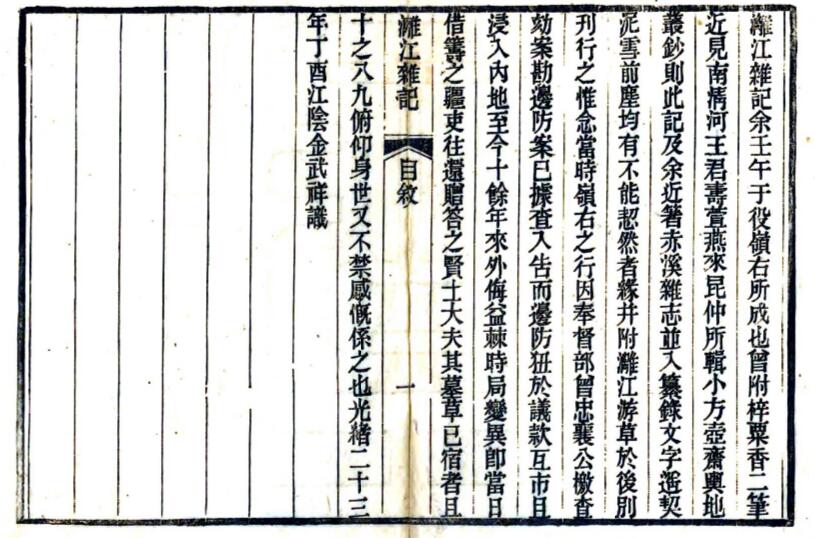 灕江雜記余壬午于役嶺右所成也曾附梓粟香二筆
近見南清河王君壽萱燕來昆仲所輯小方壺齋輿地
叢鈔則此記及余近著赤溪雜志並入纂錄文字遥契
泥雪前塵均有不能恝然者緣并附灕江游草於後別
刊行之惟念當時嶺右之行因奉督部曾忠襄公檄查
劾案勘邊防案已據查入告而邊防狃於議款互市且
浸入內地至今十餘年來外侮益棘時局變異即當日
借籌之疆吏往還贈答之賢士大夫其墓草已宿者且
灕江雜記 自敘 一
十之八九俯仰身世又不禁感慨係之也光緒二十三
年丁酉江陰金武祥識